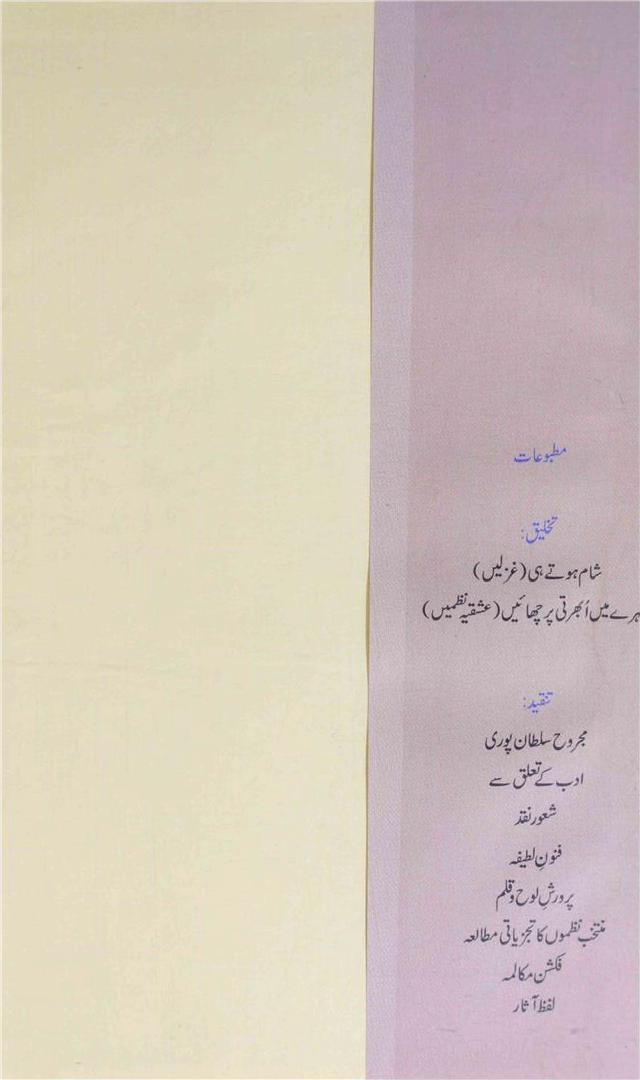 مطبوعات
تخلیق:
شام ہوتے ہی (غزلیں)
ہرے میں اُبھرتی پرچھائیں (عشقیہ نظمیں)
تنقید:
مجروح سلطان پوری
ادب کے تعلق سے
شعورِ نقد
فنونِ لطیفہ
پرورشِ لوح و قلم
منتخب نظموں کا تجزیاتی مطالعہ
فکشن مکالمہ
لفظ آثار